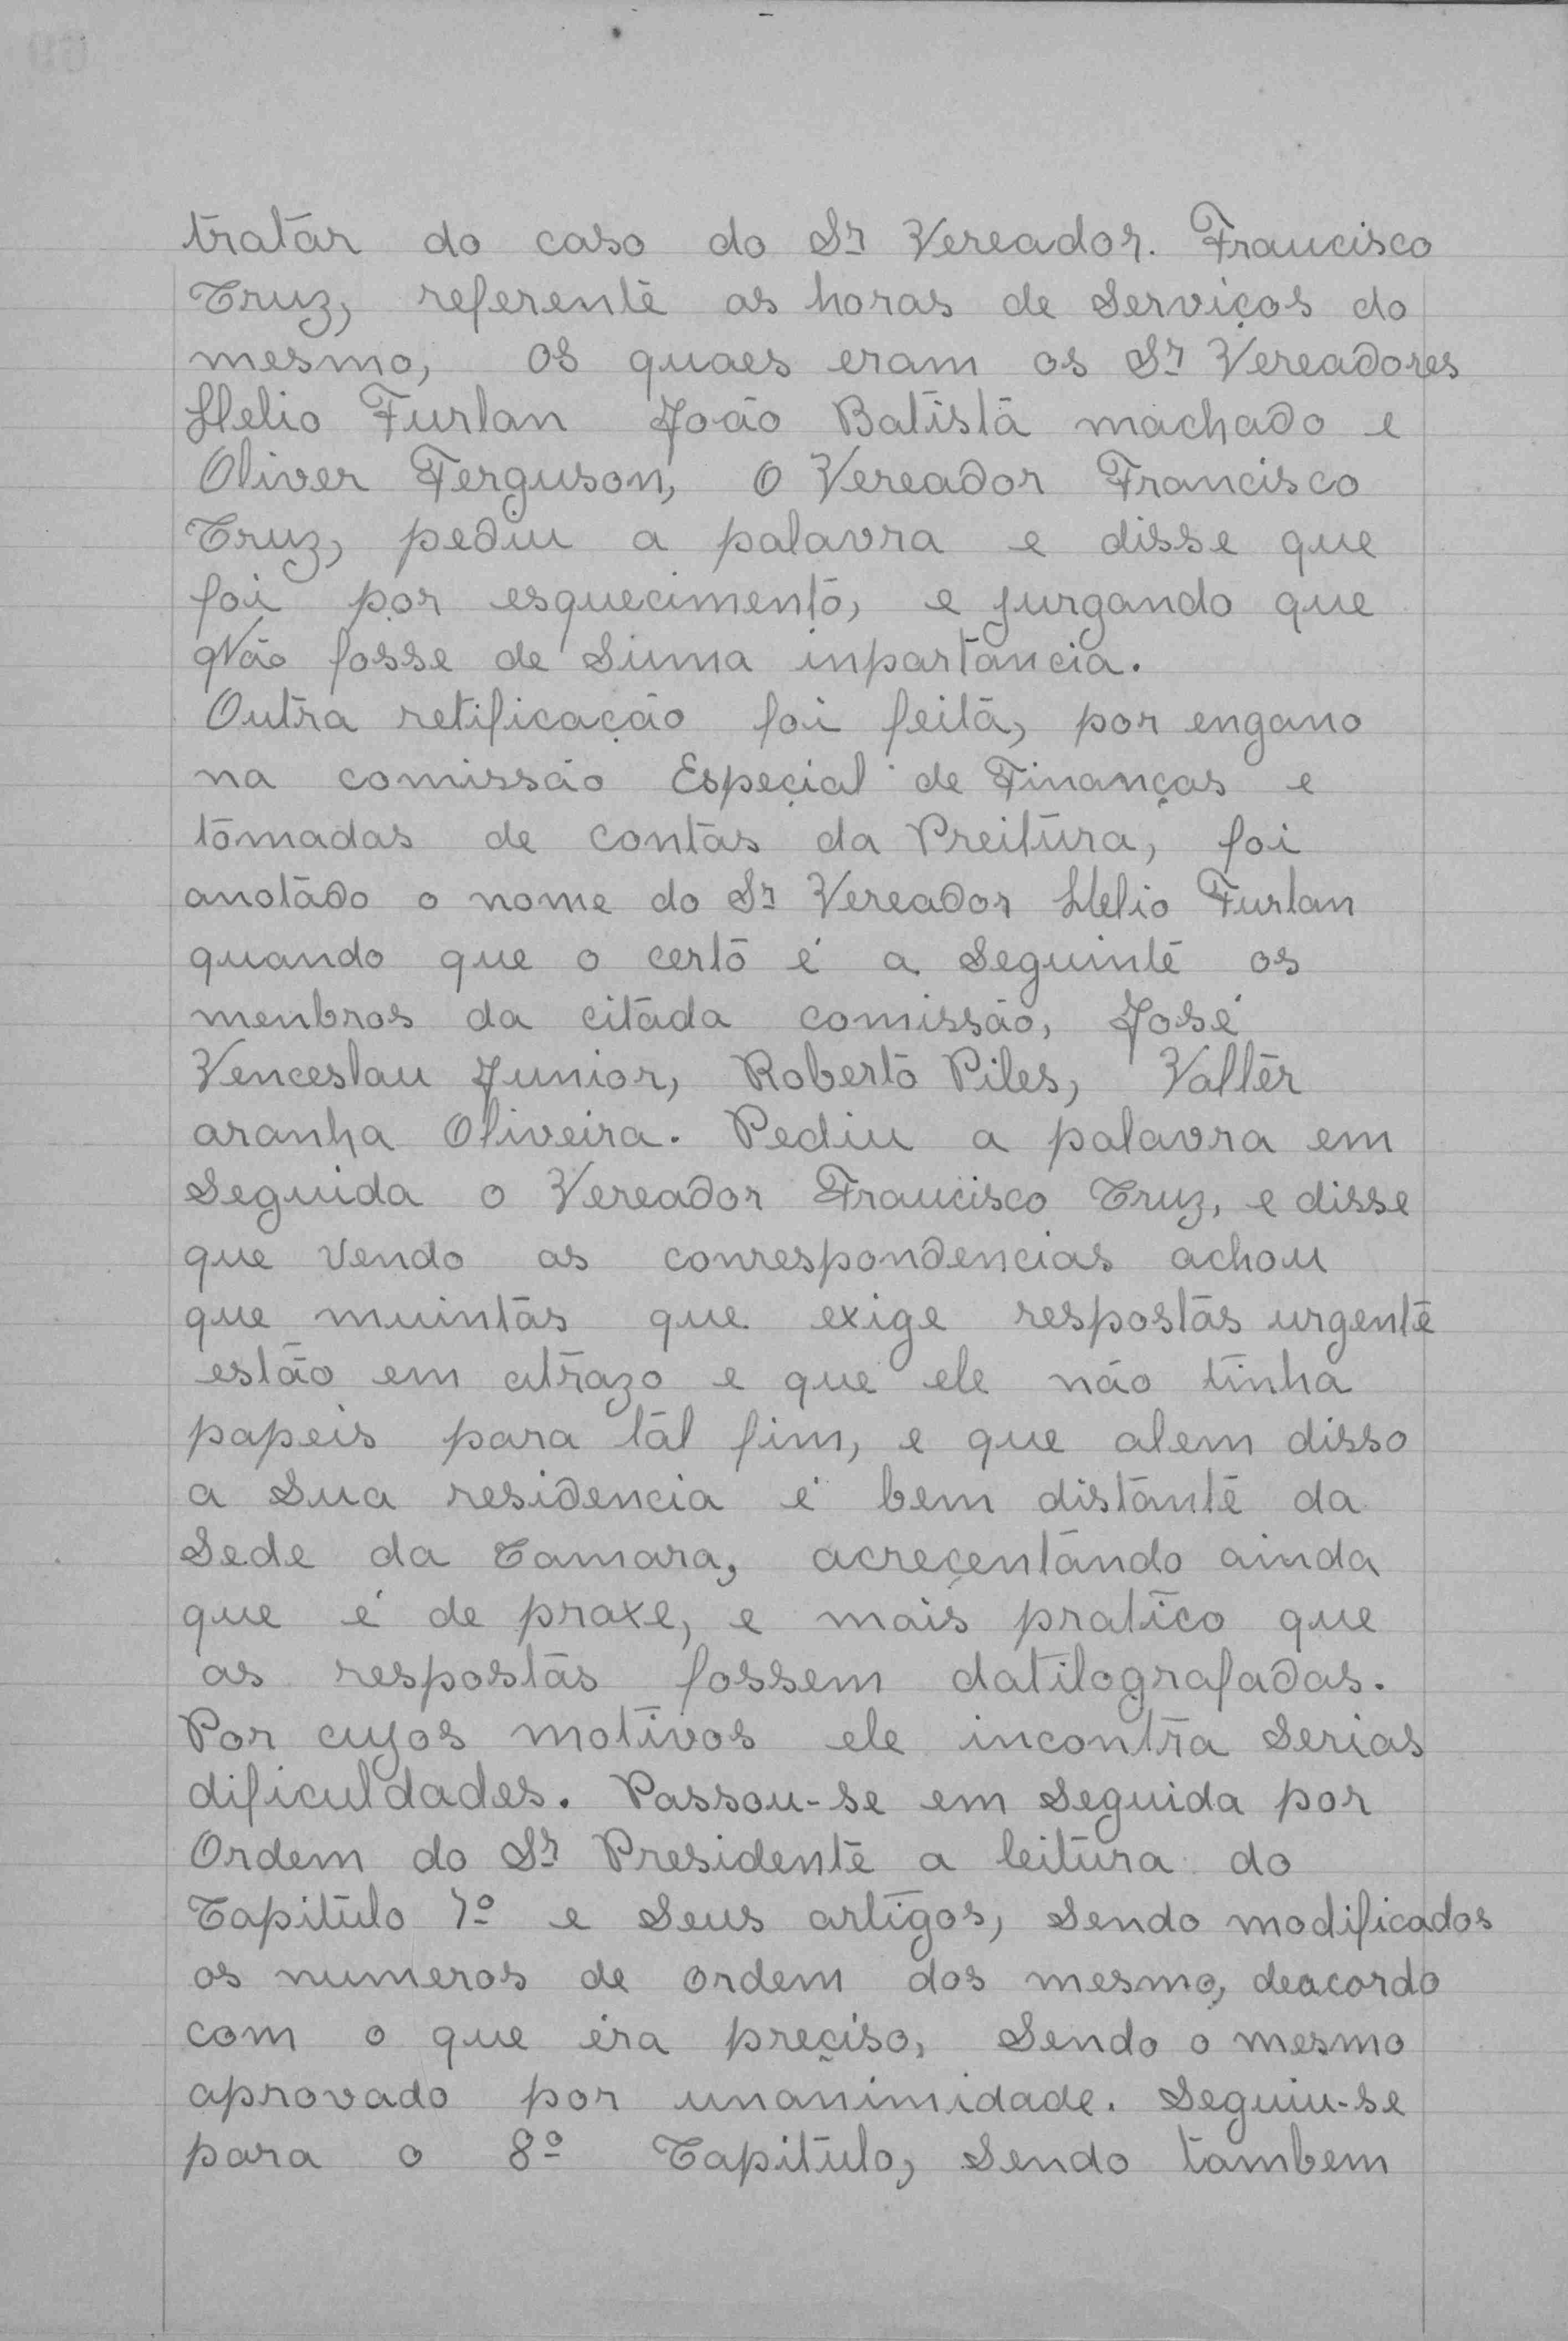 tratar do caso do Sr Vereador. Francisco
Cruz, referente as horas de Serviços do
mesmo, os quaes eram os Sr Vereadores
Helio Furlan João Batista machado e
Oliver Ferguson, O Vereador Francisco
Cruz, pediu a palavra e disse que
foi por esquecimento, e jurgando que
Não fosse de Suma inpartancia.
Outra retificação foi feita, por engano
na comissão Especial de Finanças e
tomadas de contas da Preitura, foi
anotado o nome do Sr Vereador Helio Furlan
quando que o certo é a Seguinte os
menbros da citada comissão, José
Venceslau Junior, Roberto Piles, Valter
aranha Oliveira. Pediu a palavra em
Seguida o Vereador Francisco Cruz, e disse
que Vendo as conrespondencias achou
que muintas que exige respostas urgente
estão em atrazo e que ele não tinha
papeis para tal fim, e que alem disso
a Sua residencia é bem distante da
Sede da Camara, acreçentando ainda
que é de praxe, e mais pratico que
as respostas fossem datilografadas.
Por cujos motivos ele incontra Serias
dificuldades. Passou-se em Seguida por
Ordem do Sr Presidente a leitura do
Capitulo 7º e Seus artigos, Sendo modificados
os numeros de ordem dos mesmo, deacordo
com o que éra preçiso, Sendo o mesmo
aprovado por unanimidade. Seguiu-se
para o 8º Capitulo, Sendo tambem